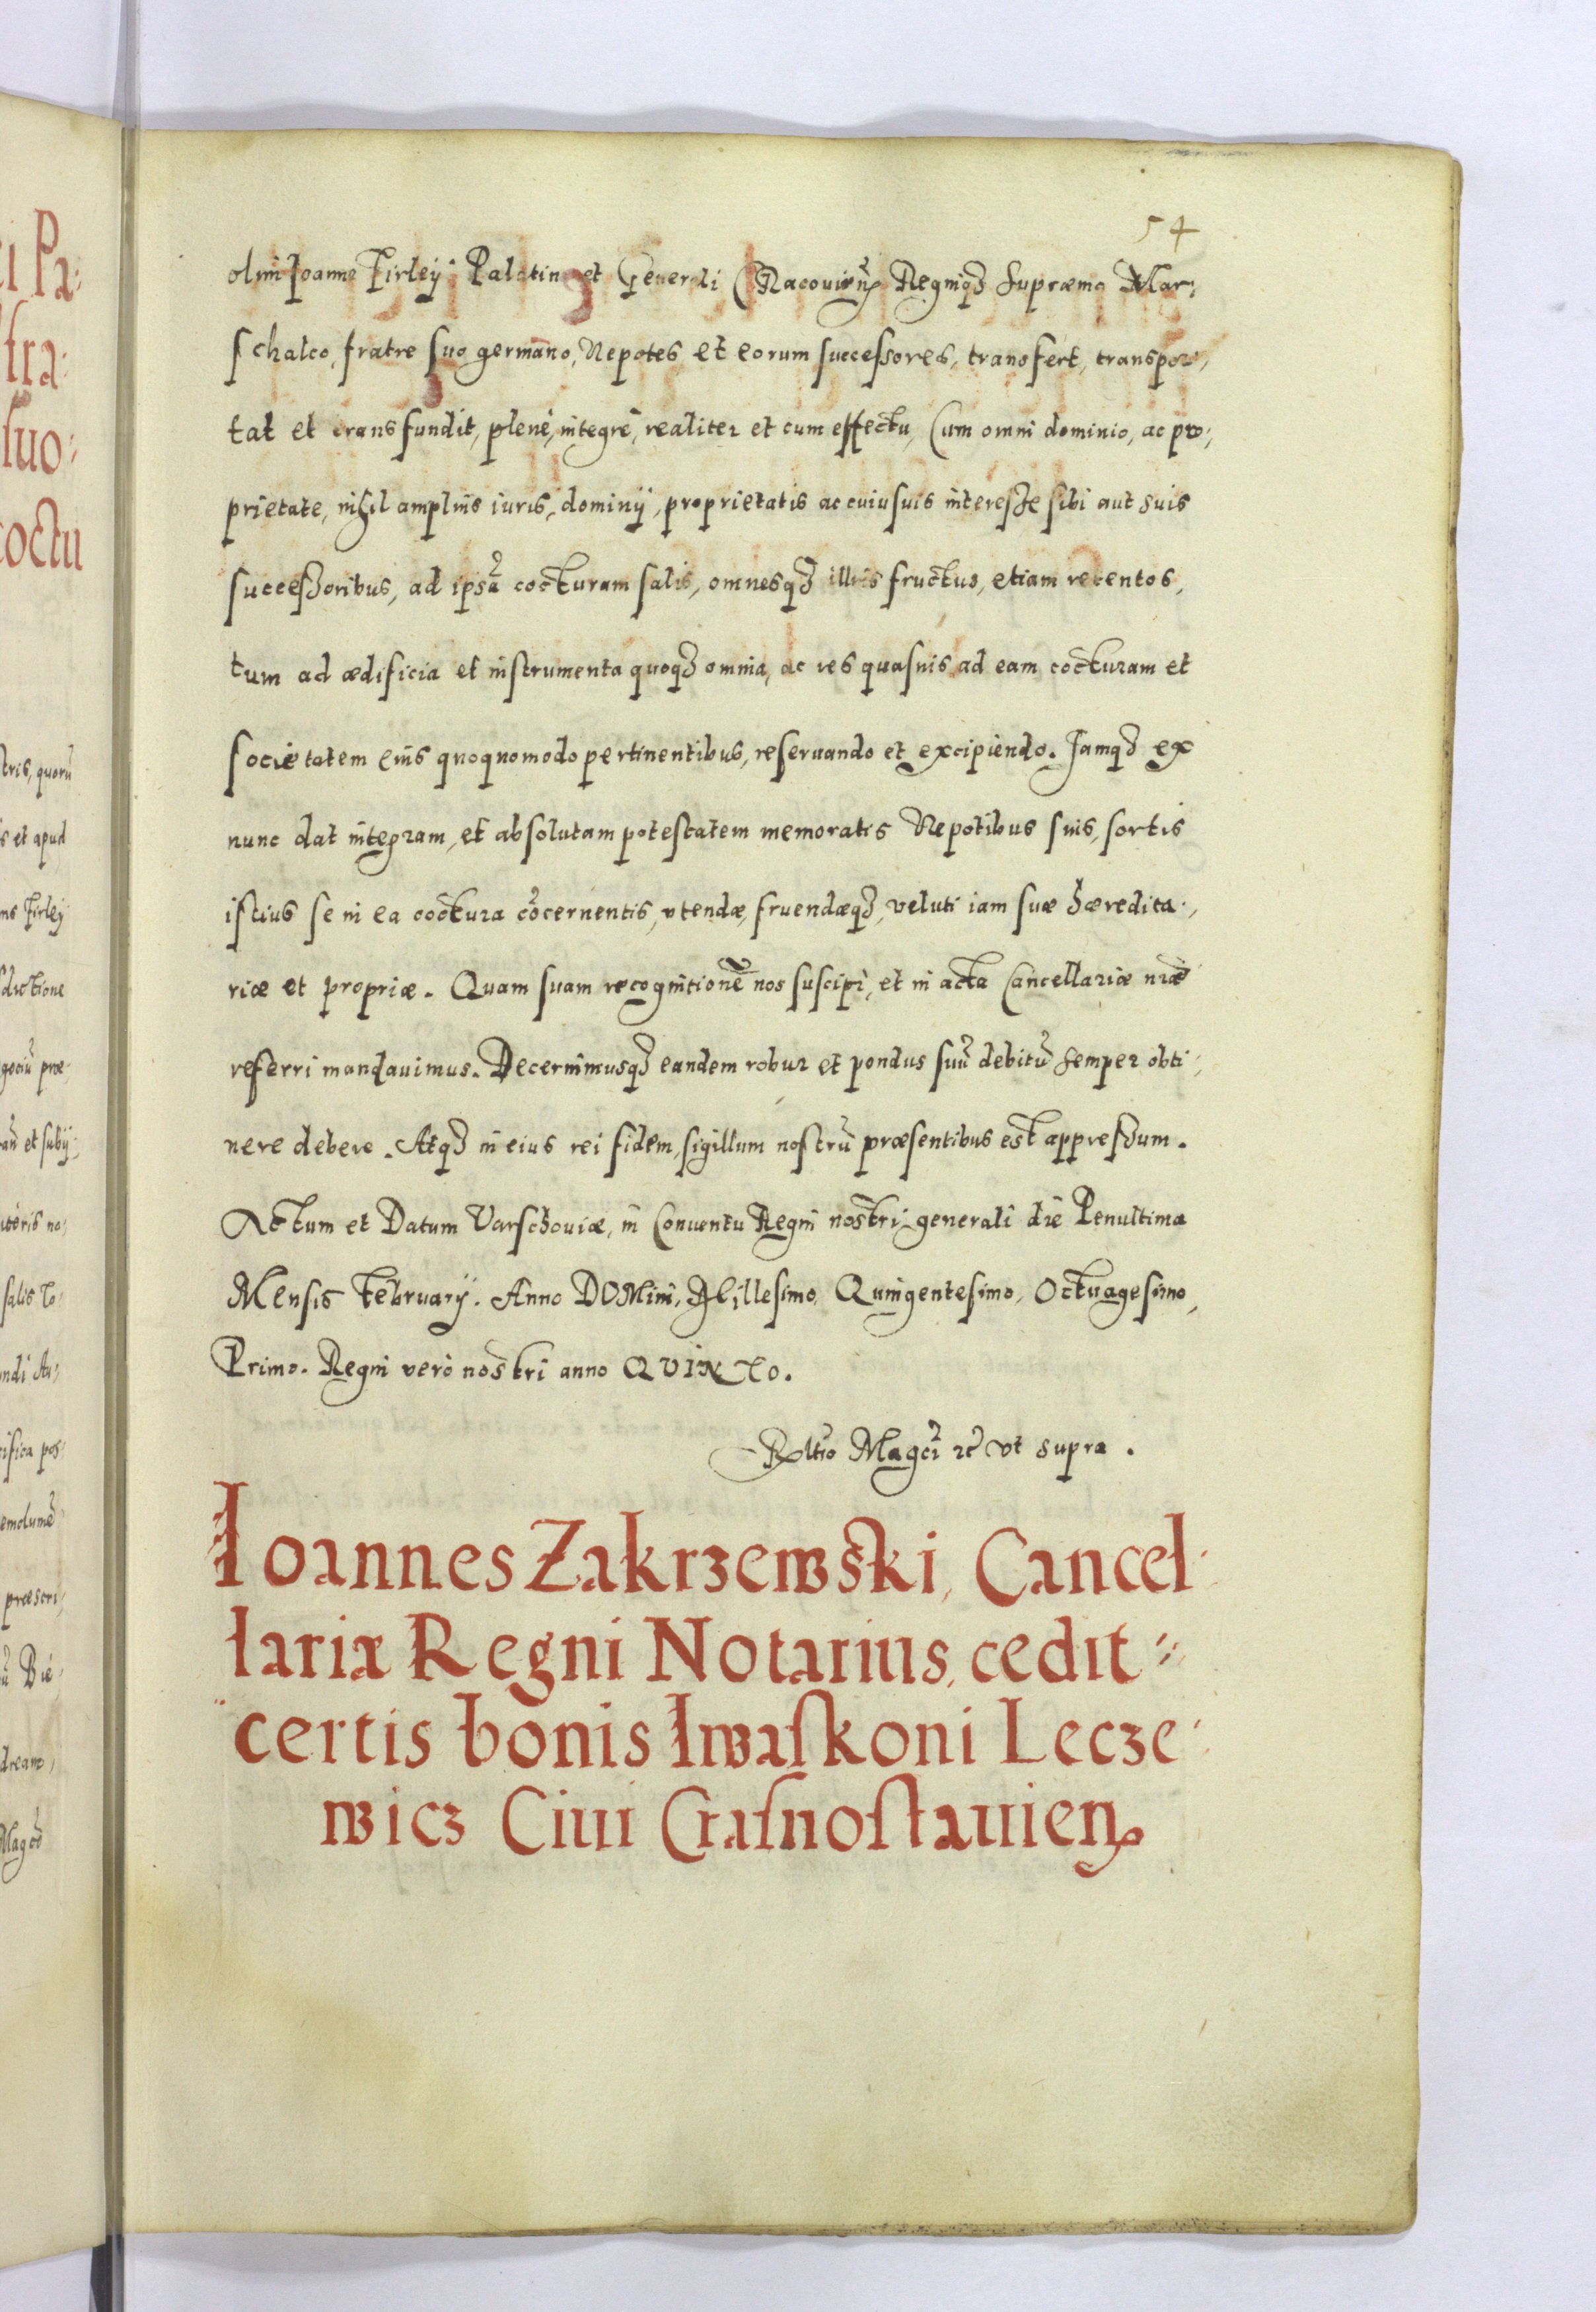 54
olim Joanne Firleÿ Palatino et Generali Cracovieñ Regniqꝫ Supræmo Mar,
schalco, fratre suo germano, Nepotes et eorum successores, transfert, transpor,
tat et transfundit, plenè, integrè, realiter et cum effectu, Cum omni dominio, ac pro,
prietate, nihil amplius iuris, dominÿ, proprietatis ac cuiusuis interesse sibi aut suis
successoribus, ad ipsã cocturam salis, omnesqꝫ illius fructus, etiam retentos,
tum ad ædificia et instrumenta quoqꝫ omnia, ac res quasuis ad eam cocturam et
societatem eius quoquomodo pertinentibus, reseruando et excipiendo. Jamqꝫ ex
nunc dat integram, et absolutam potestatem memoratis Nepotibus suis, sortis
istius se in ea coctura cõcernentis, vtendæ, fruendæqꝫ, veluti iam suæ hæredita,
riæ et propriæ. Quam suam recognitionẽ nos suscipi, et in acta Cancellariæ nr̃æ
referri mandauimus. Decernimusqꝫ eandem robur et pondus suũ debitũ semper obti,
nere debere. Atqꝫ in eius rei fidem, sigillum nostrũ præsentibus est appressum.
Actum et Datum Varschouiæ, in Conuentu Regni nostri generali die Penultima
Mensis Februarÿ. Anno DOMini, Millesimo, Quingentesimo, Octuagesimo,
Primo. Regni verò nostri anno QVINTO.
Rltio Magci ꝛc̃ vt supra.
Ioannes Zakrzewski, Cancel
lariæ Regni Notarius, cedit
certis bonis Iwaſkoni Lecze
wicz Ciui Craſnoſtauieñ